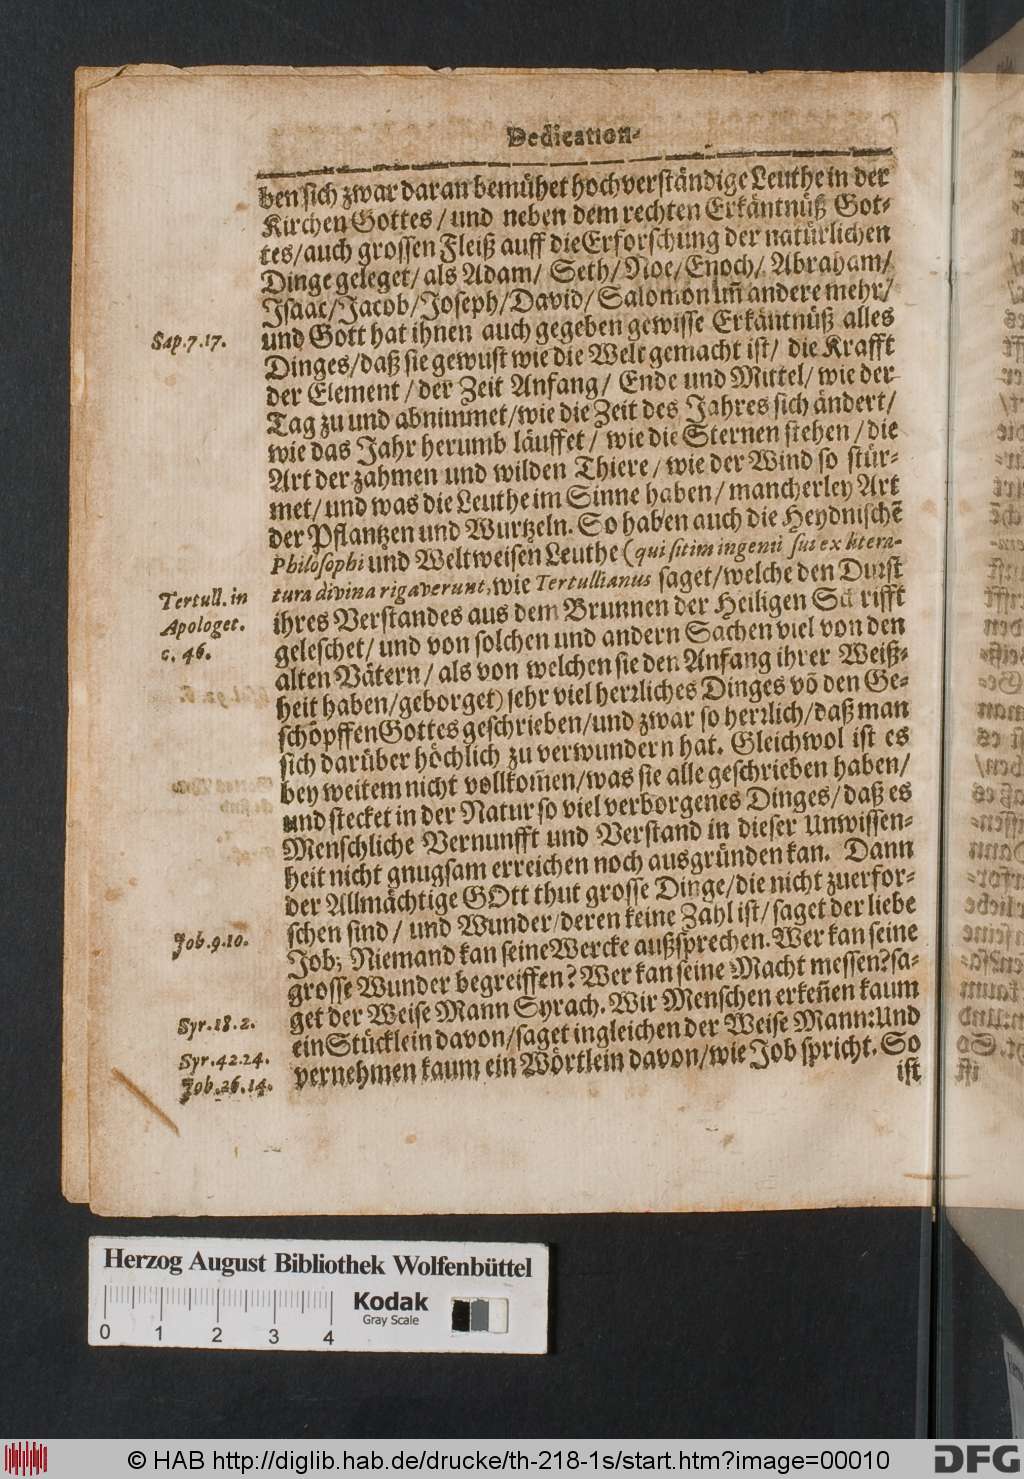 Dedication-
ben sich zwar daran bemühet hochverständige Leuthe in der
Kirchen Gottes / und neben dem rechten Erkäntnüß Got-
tes / auch grossen Fleiß auff die Erforschung der natürlichen
Dinge geleget / als Adam / Seth / Noe / Enoch / Abraham /
Isaac / Jacob / Joseph / David / Salomon uñ andere mehr /
Sap. 7. 17.
und Gott hat ihnen auch gegeben gewisse Erkäntnüß alles
Dinges / daß sie gewust wie die Welt gemacht ist / die Krafft
der Element / der Zeit Anfang / Ende und Mittel / wie der
Tag zu und abnimmet / wie die Zeit des Jahres sich ändert /
wie das Jahr herumb läuffet / wie die Sternen stehen / die
Art der zahmen und wilden Thiere / wie der Wind so stür-
met / und was die Leuthe im Sinne haben / mancherley Art
der Pflantzen und Wurtzeln. So haben auch die Heydnischẽ
Philosophi und Weltweisen Leuthe ( qui sitim ingenii sui ex litera-
Tertull. in
Apologet.
c. 46.
tura divina rigaverunt, wie Tertullianus saget / welche den Durst
ihres Verstandes aus dem Brunnen der Heiligen Schrifft
geleschet / und von solchen und andern Sachen viel von den
alten Vätern / als von welchen sie den Anfang ihrer Weiß-
heit haben / geborget) sehr viel herrliches Dinges võ den Ge-
schöpffen Gottes geschrieben / und zwar so herrlich / daß man
sich darüber höchlich zu verwundern hat. Gleichwol ist es
bey weitem nicht vollkom̃en / was sie alle geschrieben haben /
und stecket in der Natur so viel verborgenes Dinges / daß es
Menschliche Vernunfft und Verstand in dieser Unwissen-
heit nicht gnugsam erreichen noch ausgründen kan. Dann
der Allmächtige GOtt thut grosse Dinge / die nicht zuerfor-
Job. 9. 10.
schen sind / und Wunder / deren keine Zahl ist / saget der liebe
Job; Niemand kan seine Wercke außsprechen. Wer kan seine
grosse Wunder begreiffen? Wer kan seine Macht messen? sa-
Syr. 18. 2.
get der Weise Mann Syrach. Wir Menschen erkeñen kaum
Syr. 42. 24.
ein Stücklein davon / saget ingleichen der Weise Mann: Und
Job. 26. 14.
vernehmen kaum ein Wörtlein davon / wie Job spricht. So
ist
Herzog August Bibliothek Wolfenbüttel
0 1 2 3 4
Kodak
Gray Scale
© HAB http://diglib.hab.de/drucke/th-218-1s/start.htm?image=00010
DFG